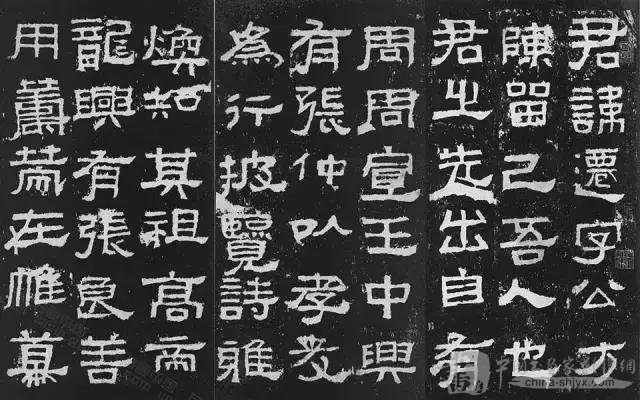 君諱遷字公方
陳留己吾人也
君之先出自有
周周宣王中興
有張仲以孝友
為行披覽詩雅
煥知其祖高帝
龍興有張良善
用籌策在帷幕
china-shjyx.com